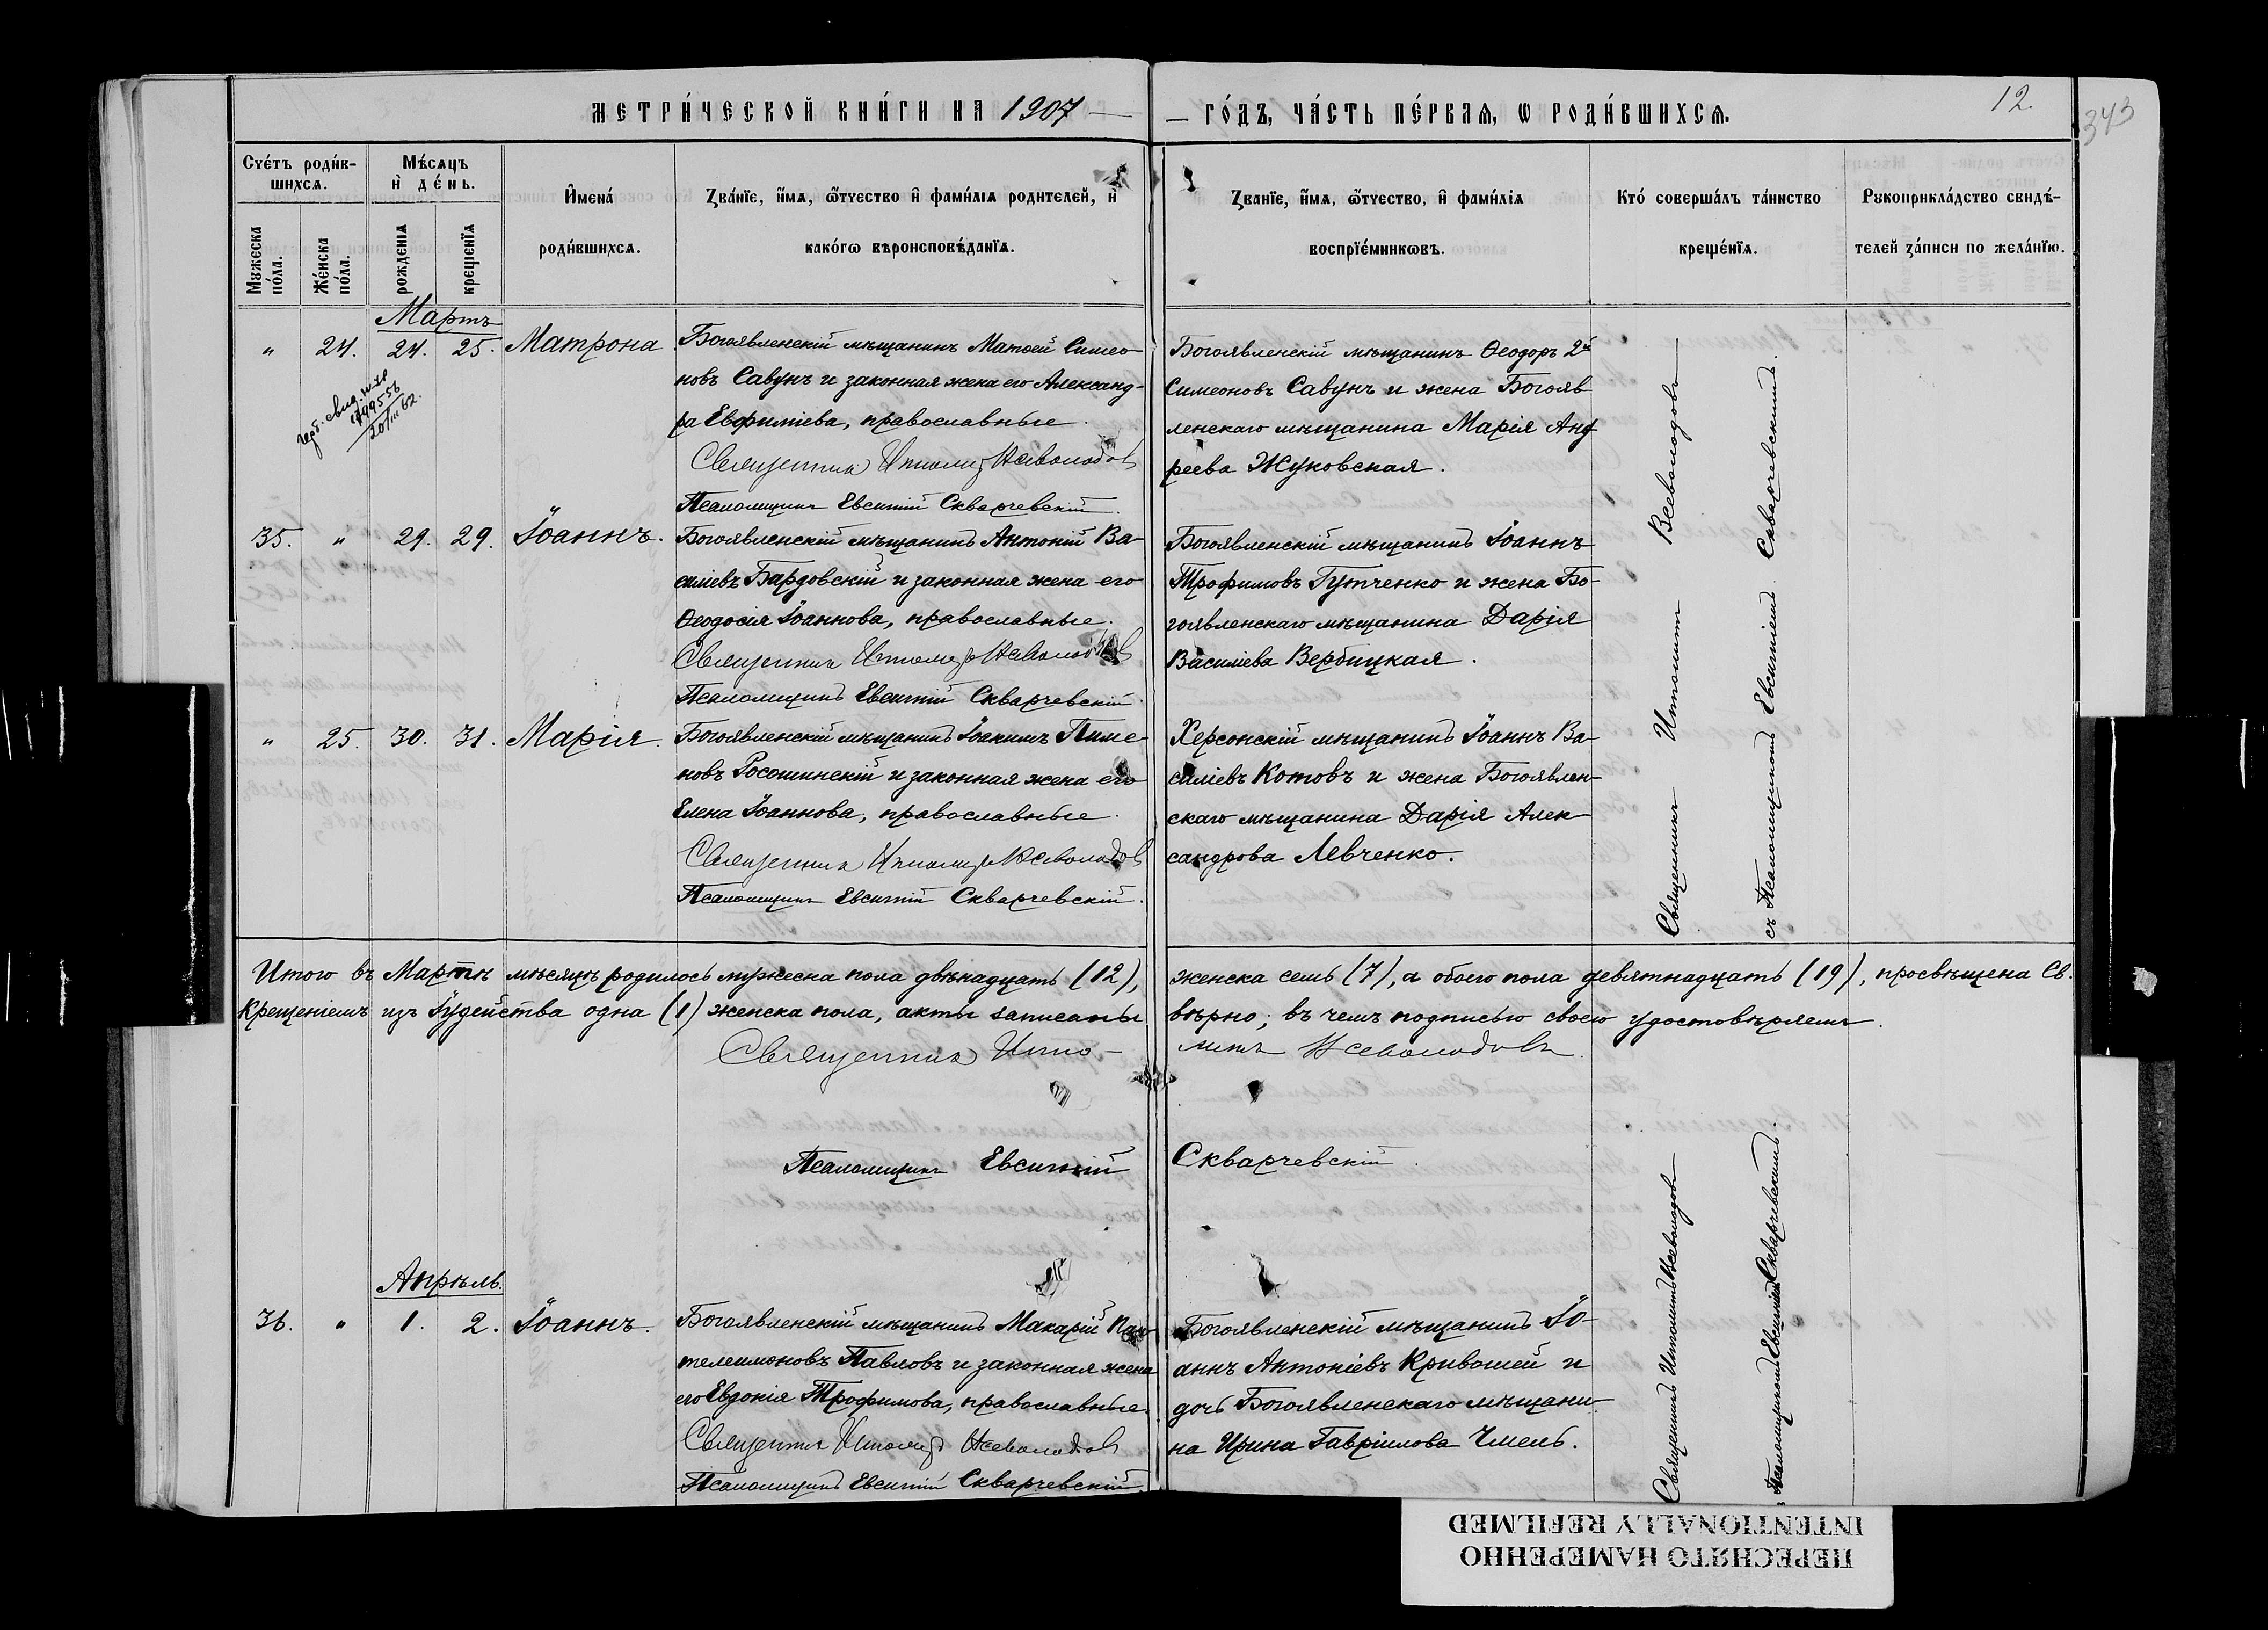 МЕТРИ́ЧЕСКОЙ КНИ́ГИ НА 1907 — — ГО́ДЪ, ЧА́СТЬ ПЕ́РВАѦ, Ѡ РОДИ́ВШИХСѦ.
12.
343
Сче́тъ роди́в-
шихсѧ.
Мужеска по́ла.
Же́нска по́ла.
Мѣ́сѧцъ
и҆ де́нь.
рожденїѧ
крещенїѧ
И҆мена́
роди́вшихсѧ.
Ꙁва́нїе, и҆́мѧ, ѻ҆́тчество и҆ фами́лїѧ родителей, и҆
како́гѡ вѣроисповѣ́данїѧ.
Ꙁва́нїе, и҆́мѧ, ѻ҆́тчество, и҆ фами́лїѧ
воспрїе́мникѡвъ.
Кто̀ соверша́лъ та́инство
креще́нїѧ.
Рукоприкла́дство свидѣ́-
телей ꙁа́писи по жела́нїю.
Мартъ
" 24. 24. 25. Матрона.
Богоявленскій мѣщанинъ Матѳей Симео
новъ Савунъ и законная жена его Александ-
ра Евфиміева, православные.
Священникъ Ипполитъ Всеволодовъ
Псаломщикъ Евсигній Скварчевскій.
Богоявленскій мѣщанинъ Ѳеодоръ 2й
Симеоновъ Савунъ и жена Богояв
ленскаго мѣщанина Марія Анд
реева Жуковская.
35. " 29. 29. Іоаннъ.
Богоявленскій мѣщанинъ Антоній Ва-
силіевъ Бардовскій и законная жена его
Ѳеодосія Іоаннова, православные.
Священникъ Ипполитъ Всеволодовъ
Псаломщикъ Евсигній Скварчевскій
Богоявленскій мѣщанинъ Іоаннъ
Трофимовъ Гутченко и жена Бо-
гоявленскаго мѣщанина Дарія
Василіева Вербицкая.
" 25. 30. 31. Марія.
Богоявленскій мѣщанинъ Іоакимъ Пиме-
новъ Росошинскій и законная жена его
Елена Іоаннова, православные.
Священникъ Ипполитъ Всеволодовъ
Псаломщикъ Евсигній Скварчевскій.
Херсонскій мѣщанинъ Іоаннъ Ва-
силіевъ Котовъ и жена Богоявлен-
скаго мѣщанина Дарія Алек
сандрова Левченко.
Священникъ Ипполитъ Всеволодовъ
съ Псаломщикомъ Евсигніемъ Скварчевскимъ.
Итого въ Мартѣ мѣсяцѣ родилось мужеска пола двѣнадцать (12), женска семь (7), а обоего пола девятнадцать (19), просвѣщена Св.
Крещеніемъ изъ Іудейства одна (1) женска пола, акты записаны вѣрно; въ чемъ подписью своею удостовѣряемъ.
Священникъ Иппо- литъ Всеволодовъ.
Псаломщикъ Евсигній Скварчевскій.
Апрѣль.
36. " 1. 2. Іоаннъ.
Богоявленскій мѣщанинъ Макарій Пан-
телеимоновъ Павловъ и законная жена
его Евдокія Трофимова, православные.
Священникъ Ипполитъ Всеволодовъ
Псаломщикъ Евсигній Скварчевскій.
Богоявленскій мѣщанинъ Іо-
аннъ Антоніевъ Кривошей и
дочь Богоявленскаго мѣщани-
на Ирина Гавріилова Чмель.
Священникъ Ипполитъ Всеволодовъ
Псаломщикомъ Евсигніемъ Скварчевскимъ.
ПЕРЕСНЯТО НАМЕРЕННО
INTENTIONALLY REFILMED